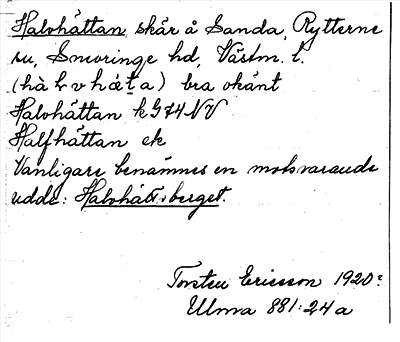 Halvhättan, skär å Sanda, Rytterne
sn, Snevringe hd, Västm. l.
(hàl̀vhät̀a) bra okänt
Halvhättan k G 74 NV
Halfhättan ek
Vanligare benämnes en motsvarande
udde: Halvhättsberget.
Torsten Ericsson 1920:
Ulma 881:24 a